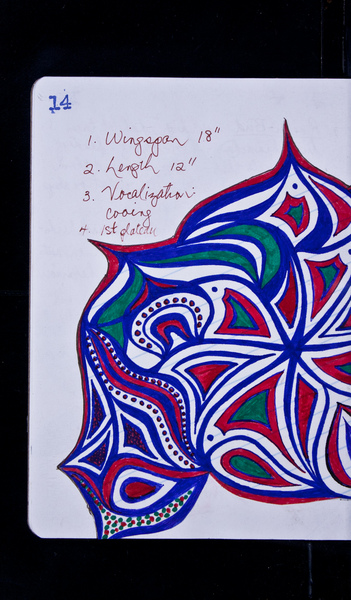 14
1. Wingspan 18"
2. Length 12"
3. Vocalization:
cooing
4. 1st plateau